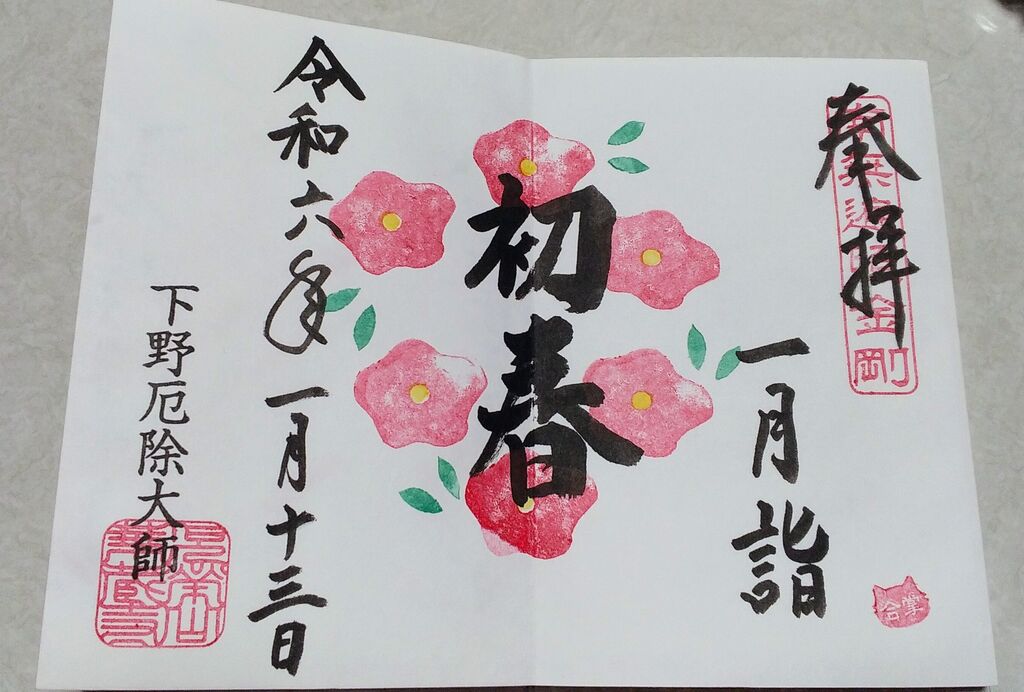 奉拝
一月詣
合掌
初春
令和六年一月十三日
下野厄除大師